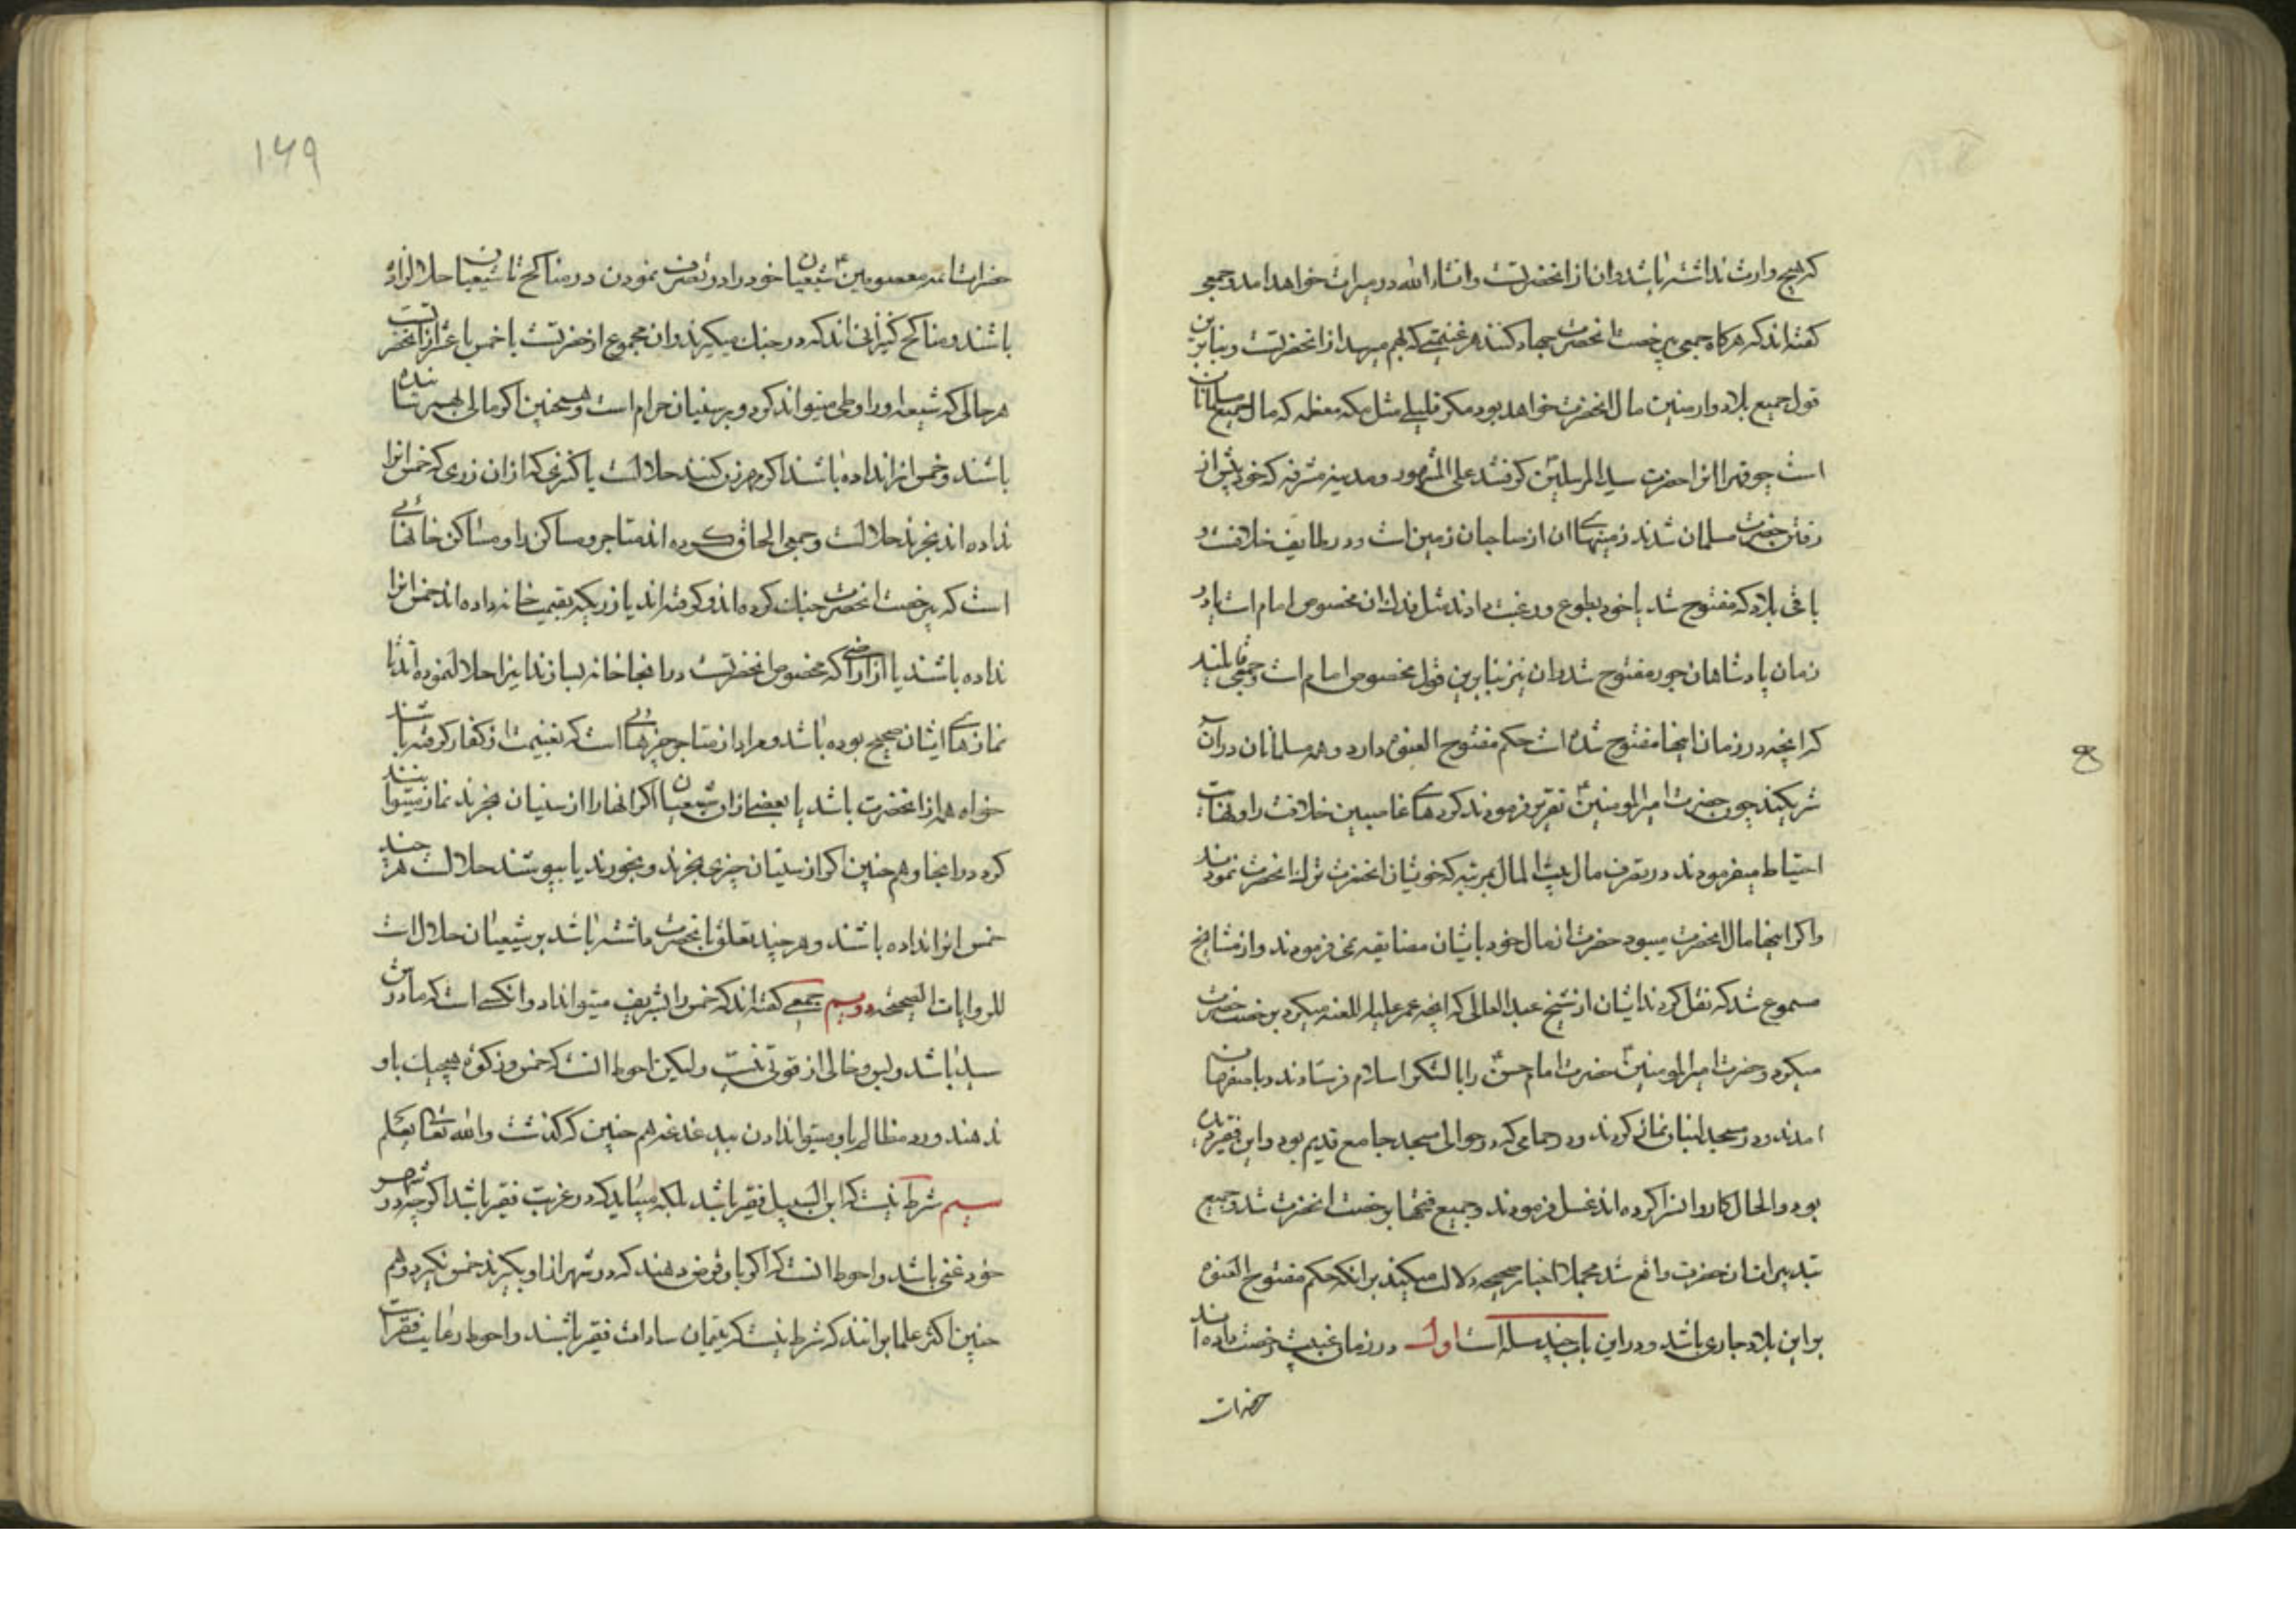 که هیچ وارث نداشته باشد و ان از انحضرتست و انشاء الله در میراث خواهد امد و جمعی
گفته‌اند که هرگاه جمعی بی رخصت انحضرت جهاد کنند هر غنیمتی که بهم میرسد از انحضرتست و بنابرین
قول جمیع بلاد و ارضین مال انحضرت خواهد بود مکر قلیلی مثل مکه معظمه که مال جمیع مسلمانان
است چو قهرا انرا حضرت سید المرسلین گرفتند علی المشهور و مدینه مشرفه که خود پیش از
رفتن حضرت مسلمان شدند زمینهای ان از صاحبان زمین است و در طایف خلافست و
باقی بلاد که مفتوح شد یا خود بطوع و رغبت دادند مثل فدک ان مخصوص امام است یا در
زمان پادشاهان جور مفتوح شد و ان نیز بنابرین قول مخصوص امام است و جمعی قائلند
که انچه در زمان اینها مفتوح شده است حکم مفتوح العنوه دارد و همه مسلمانان در ان
شریکند چون حضرت امیرالمومنین تقریر فرمودند کردهای غاصبین خلافت را و نهایت
احتیاط میفرمودند در تصرف مال بیت المال بمرتبه که خویشان انحضرت ترک انحضرت نمودند
و اگر اینها مال انحضرت میبود حضرت از مال خود با ایشان مضایقه نمی فرمودند و از مشایخ
مسموع شد که نقل کردند ایشان از شیخ عبد العالی که انچه عمر علیه اللعنه میکرد برخصت حضرت
میکرد و حضرت امیرالمومنین حضرت امام حسن را با لشکر اسلام فرستادند و با صفهان
امدند و در مسجد لنبان نماز کردند و در حمامی که در حوالی مسجد جامع قدیم بود و این فقیر دیده
بود و الحال کاروانسرا کرده اند غسل فرمودند و جمیع فتحها برخصت انحضرت شد و جمیع
تدبیر ایشان حضرت واقع شد مجملا اخبار صحیحه دلالت میکند بر انکه حکم مفتوح العنوه
بر این بلاد جاری باشد و در این باب چند مسله است اول در زمان غیبت رخصت داده اند
حضرات
۱۶۹
حضرات ائمه معصومین شیعیان خود را در تصرف نمودن در مناکح تا شیعیان حلال زاده
باشند و مناکح کنیزانی اند که در جنگ میکیرند و ان مجموع از حضرتست یا خمس یا عشر از انحضرتست
هر حالی که شیعه او را وطی میتواند کرد و بر سنیان حرام است و همچنین اکر مالی بهم رسانیده
باشند و خمس انرا نداده باشند اکر مهر زن کنند حلالست یا کنیزی که از ان زری که خمس انرا
نداده اند بخرند حلالست و جمعی الحاق کرده اند متاجر و مساکن را و مساکن خانهائی
است که برخصت انحضرت جنک کرده اند و کرفته اند یا زریکه بقیمت خانه داده اند خمس انرا
نداده باشند یا از اراضی که مخصوص انحضرتست در انجا خانه بسازند اینرا حلال نموده اند تا
نمازهای ایشان صحیح بوده باشد و مراد از متاجر چیزهائی است که بغنیمت از کفار کرفته باشند
خواه همه از انحضرت باشد یا بعضی از ان شیعیان اکر انها را از سنیان بخرند نماز میتوانند
کرد در انجا و هم چنین اکر از سنیان چیزی بخرند و بخورند یا بپوشند حلالست هر چند
خمس انرا نداده باشند و هر چند تعلق بانحضرت داشته باشد بر شیعیان حلال است
للروایات الصحیحه دویم جمعی گفته اند که خمس را بشریف میتوان داد و انکسی است که مادرش
سیده باشد و بس و خالی از قوتی نیست ولیکن احوط انست که خمس و زکوة هیچیک باو
ندهند و رد مظالم باو میتوان دادن بیدغدغه هم چنین که گذشت والله تعالی یعلم
سیم شرط نیست که ابن السبیل فقیر باشد بلکه میباید که در غربت فقیر باشد اکرچه در شهر
خود غنی باشد و احوط انست که اکر باو قرض دهند که در شهر از او بکیرند خمس نکیرد و هم
چنین اکثر علما برانند که شرط نیست که یتیمان سادات فقیر باشند و احوط رعایت فقر است